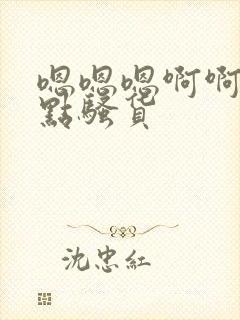 嗯嗯嗯啊啊
點騷貨
沈忠紅